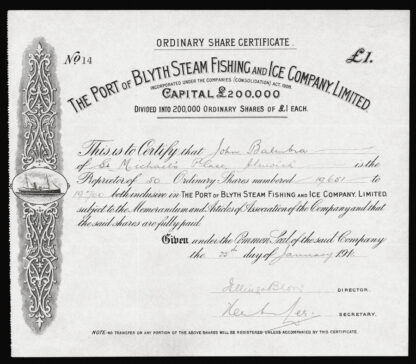 ORDINARY SHARE CERTIFICATE.
No 14
£1.
THE PORT OF BLYTH STEAM FISHING AND ICE COMPANY, LIMITED.
INCORPORATED UNDER THE COMPANIES (CONSOLIDATION) ACT, 1908.
CAPITAL £200,000
DIVIDED INTO 200,000 ORDINARY SHARES OF £1 EACH.
This is to Certify that John
of St. Michael's Place Alnwick is the
Proprietor of 50 Ordinary Shares numbered 19651
to 19700 both inclusive in THE PORT OF BLYTH STEAM FISHING AND ICE COMPANY, LIMITED,
subject to the Memorandum and Articles of Association of the Company and that
the said shares are fully paid.
Given under the Common Seal of the said Company
the day of January 191
DIRECTOR.
SECRETARY.
NOTE:-NO TRANSFER OR ANY PORTION OF THE ABOVE SHARES WILL BE REGISTERED UNLESS ACCOMPANIED BY THIS CERTIFICATE.